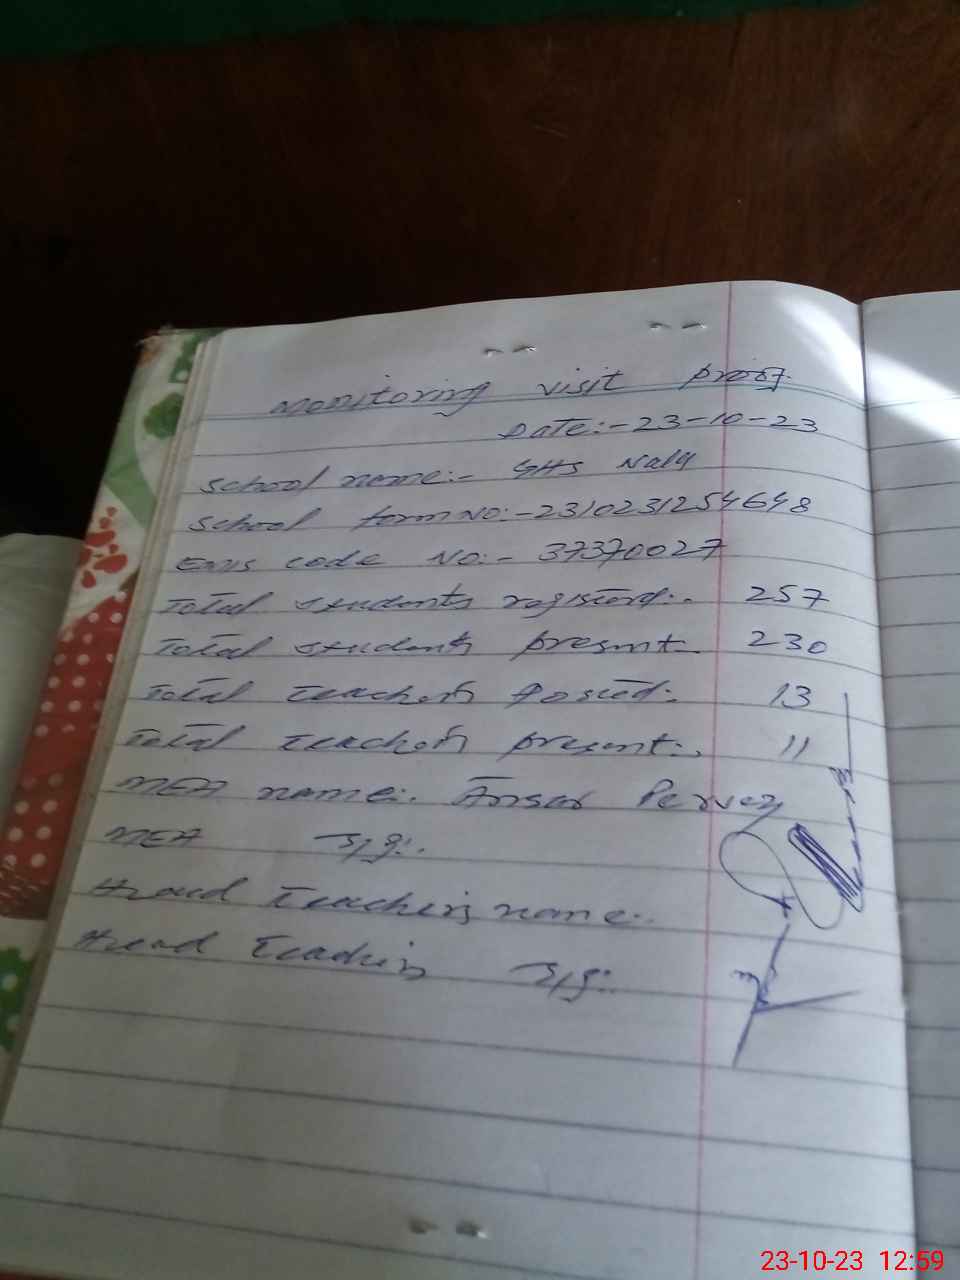 Monitoring visit proof.
Date:-23-10-23
School name:- GHS Nala
School form No:-2310231254648
Emis code No:- 37370027
Total students registerd:. 257
Total students present. 230
Total teachers posted:. 13
Total teachers present:. 11
MEA name:. Ansar Pervez
MEA Sig:.
Head teachers name:.
Head teachers Sig:.
23-10-23 12:59